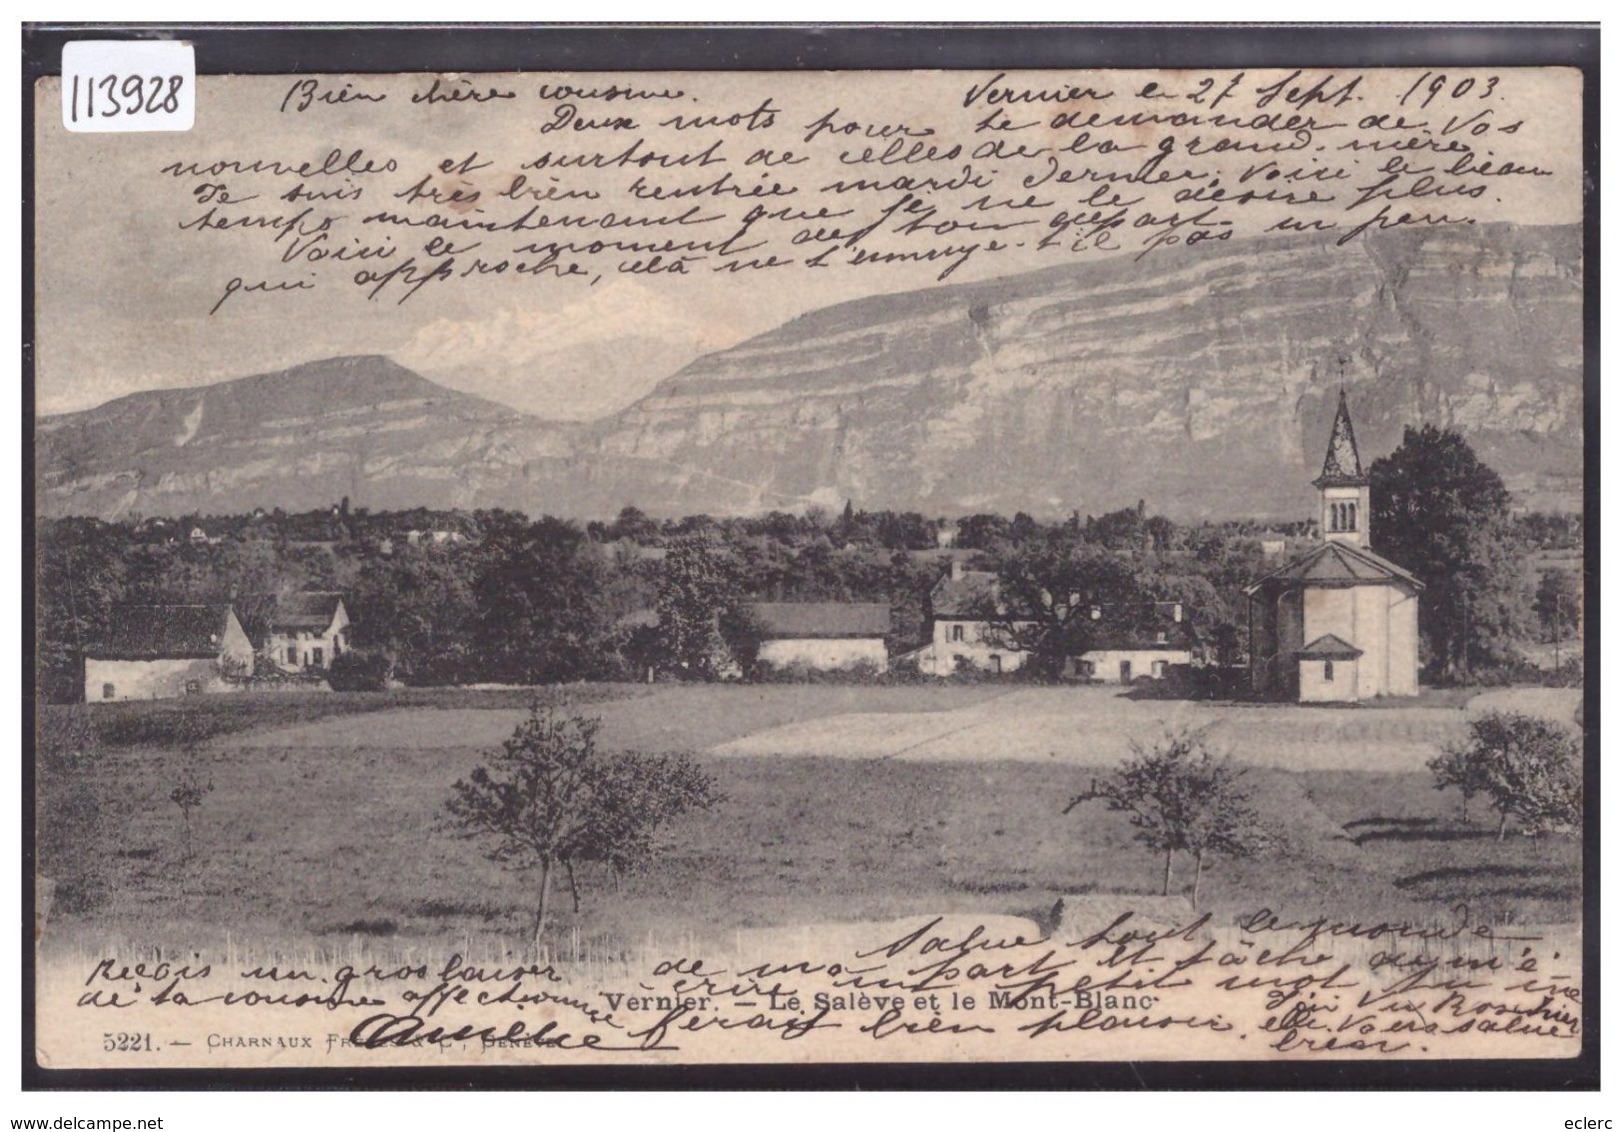 113928
Bien chère cousine. Vernier le 27 Sept. 1903.
Deux mots pour te demander de vos
nouvelles et surtout de celles de la grand-mère
Je suis très bien rentrée mardi dernier, voici le beau
temps maintenant que je ne le désire plus.
Voici le moment de ton départ
qui approche, celà ne t'ennuye-t'il pas un peu.
Salue tout le monde
de ma part et tâche de m'é-
crire un petit mot tu me
feras bien plaisir.
J'ai vu
elle vous salue
bien.
Reçois un gros baiser
de ta cousine affectionnée
Vernier. - Le Salève et le Mont-Blanc
5221. - CHARNAUX FRÈRES & Cº, GENÈVE
delcampe.net
eclerc